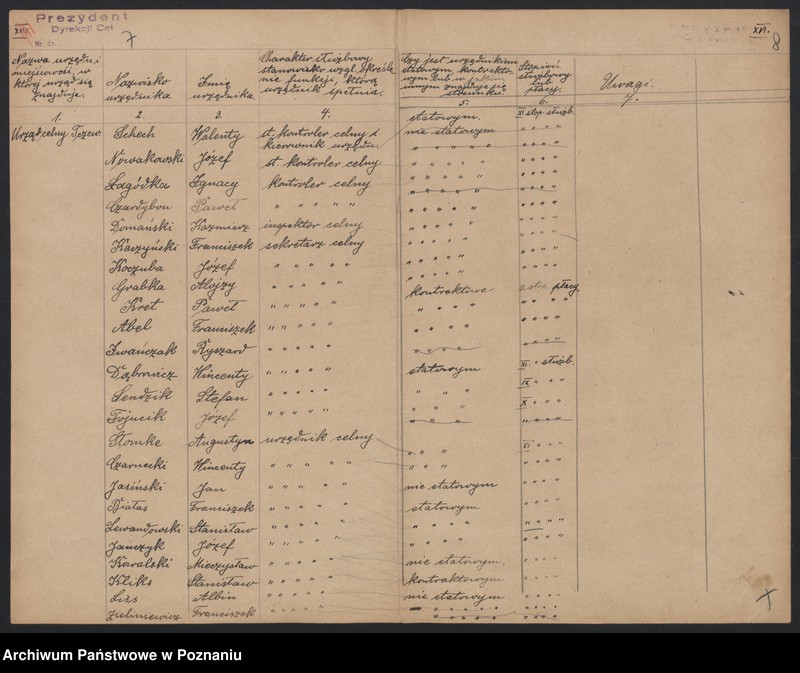 Prezydent
Dyrekcji Ceł
Nr. dz.
7
XVI.
8
Nazwa urzędu i
miejscowość, w
której urząd się
znajduje.
Nazwisko
urzędnika
Imię
urzędnika.
Charakter służbowy
stanowisko wzgl. określe
nie funkcji, którą
urzędnik spełnia.
Czy jest urzędnikiem
etatowym, kontrakto-
wym lub w jakim
innym znajduje się
stosunku.
Stopień
służbowy
lub
płacy.
Uwagi.
1. 2. 3. 4. 5. 6. 7.
Urząd celny Tczew. Schech Walenty st. kontroler celny i etatowym. XI stop. służb.
kierownik urzędu. nie etatowym " " "
Nowakowski Józef st. kontroler celny " " " " " " " "
Łagódka Ignacy kontroler celny " " " " " " " "
Czardybon Paweł " " " " " " " " " " " "
Domański Kazimierz inspektor celny " " " " " " " "
Kaczyński Franciszek sekretarz celny " " " " " " " "
Koczuba Józef " " " " " " " " " " " "
Grabka Alojzy " " " " " kontraktowe płacy.
Kret Paweł " " " " " " " " " " " "
Abel Franciszek " " " " " " " " " " " "
Iwańczak Ryszard " " " " " " " " " " " "
Dąbrowicz Wincenty " " " " " etatowym XI. " służb.
Lendzik Stefan " " " " " " " " IX " " "
Fojucik Józef " " " " " " " " X " " "
Stomke Augustyn urzędnik celny " " " XI " " "
Czarnecki Wincenty " " " " " " " " " " " "
Jasiński Jan " " " " " nie etatowym " " " "
Białas Franciszek " " " " " etatowym " " " "
Lewandowski Stanisław " " " " " " " " " " " "
Jańczyk Józef " " " " " " " " " " " "
Kowalski Mieczysław " " " " " nie etatowym. " " " "
Kliks Stanisław " " " " " kontraktowym " " " "
Liss Albin " " " " " nie etatowym " " " "
Zieliniewicz Franciszek " " " " " " " " " " " " "
Archiwum Państwowe w Poznaniu